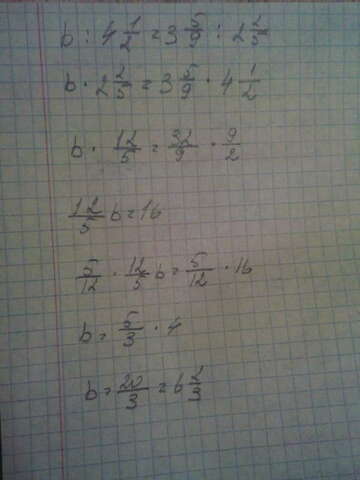 b : 4 1/2 = 3 5/9 : 2 2/5
b · 2 2/5 = 3 5/9 · 4 1/2
b · 12/5 = 32/9 · 9/2
12/5 b = 16
5/12 · 12/5 b = 5/12 · 16
b = 5/3 · 4
b = 20/3 = 6 2/3